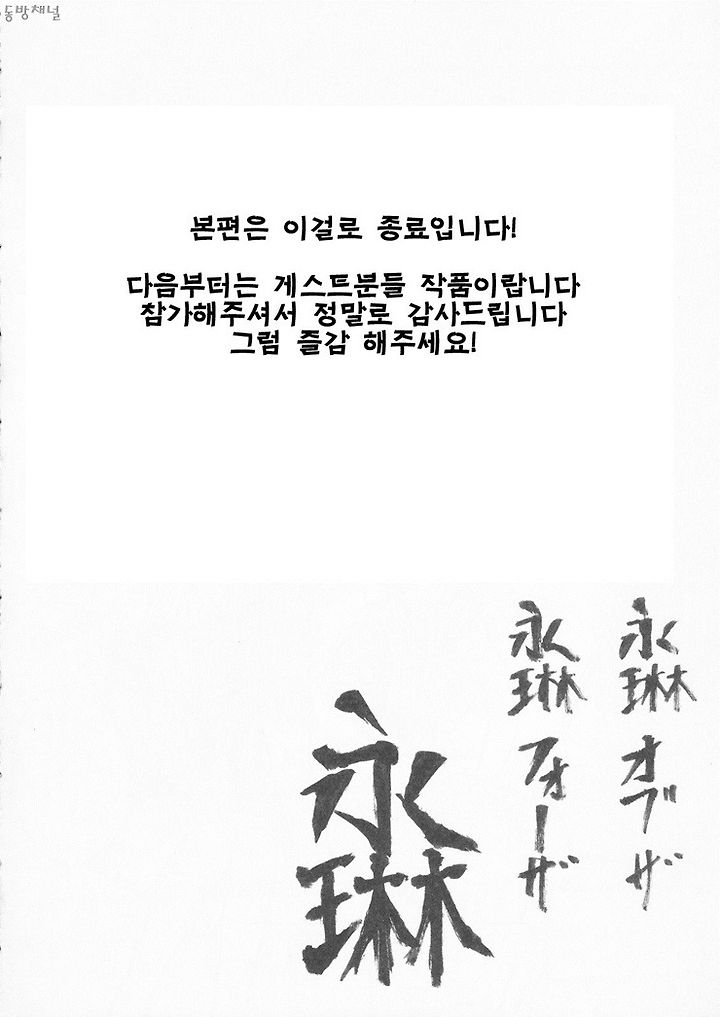 동방채널
본편은 이걸로 종료입니다!
다음부터는 게스트분들 작품이랍니다
참가해주셔서 정말로 감사드립니다
그럼 즐감 해주세요!
永琳オブザ
永琳フォーザ
永琳